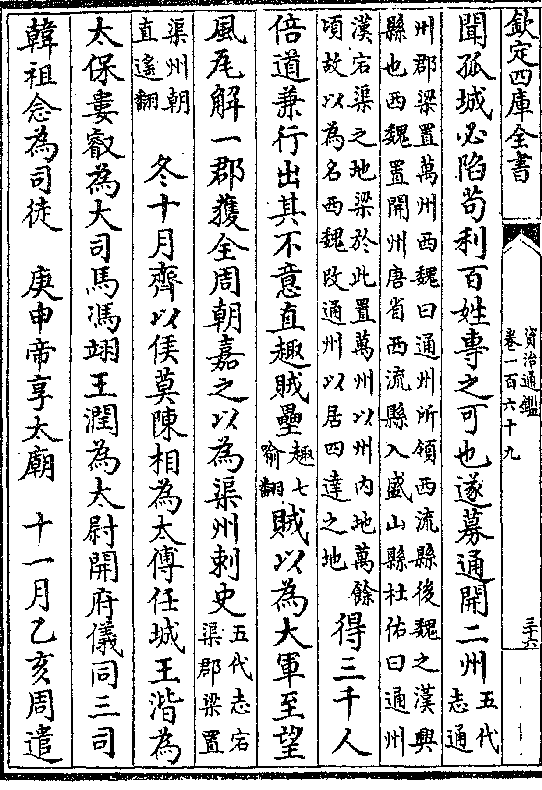 欽定四庫全書
資治通鑑
卷一百六十九
三十六
聞孤城必陷苟利百姓專之可也遂募通開二州五代志通
州郡梁置萬州西魏曰通州所領西流縣後魏之漢興
縣也西魏置開州唐省西流縣入盛山縣杜佑曰通州
漢宕渠之地梁於此置萬州以州內地萬餘
頃故以為名西魏改通州以居四達之地
得三千人
倍道兼行出其不意直趣賊壘趣七喻翻賊以為大軍至望
風瓦解一郡獲全周朝嘉之以為渠州刺史五代志宕渠郡梁置
渠州朝直遙翻 冬十月齊以侯莫陳相為太傅任城王湝為
太保婁叡為大司馬馮翊王潤為太尉開府儀同三司
韓祖念為司徒 庚申帝享太廟 十一月乙亥周遣